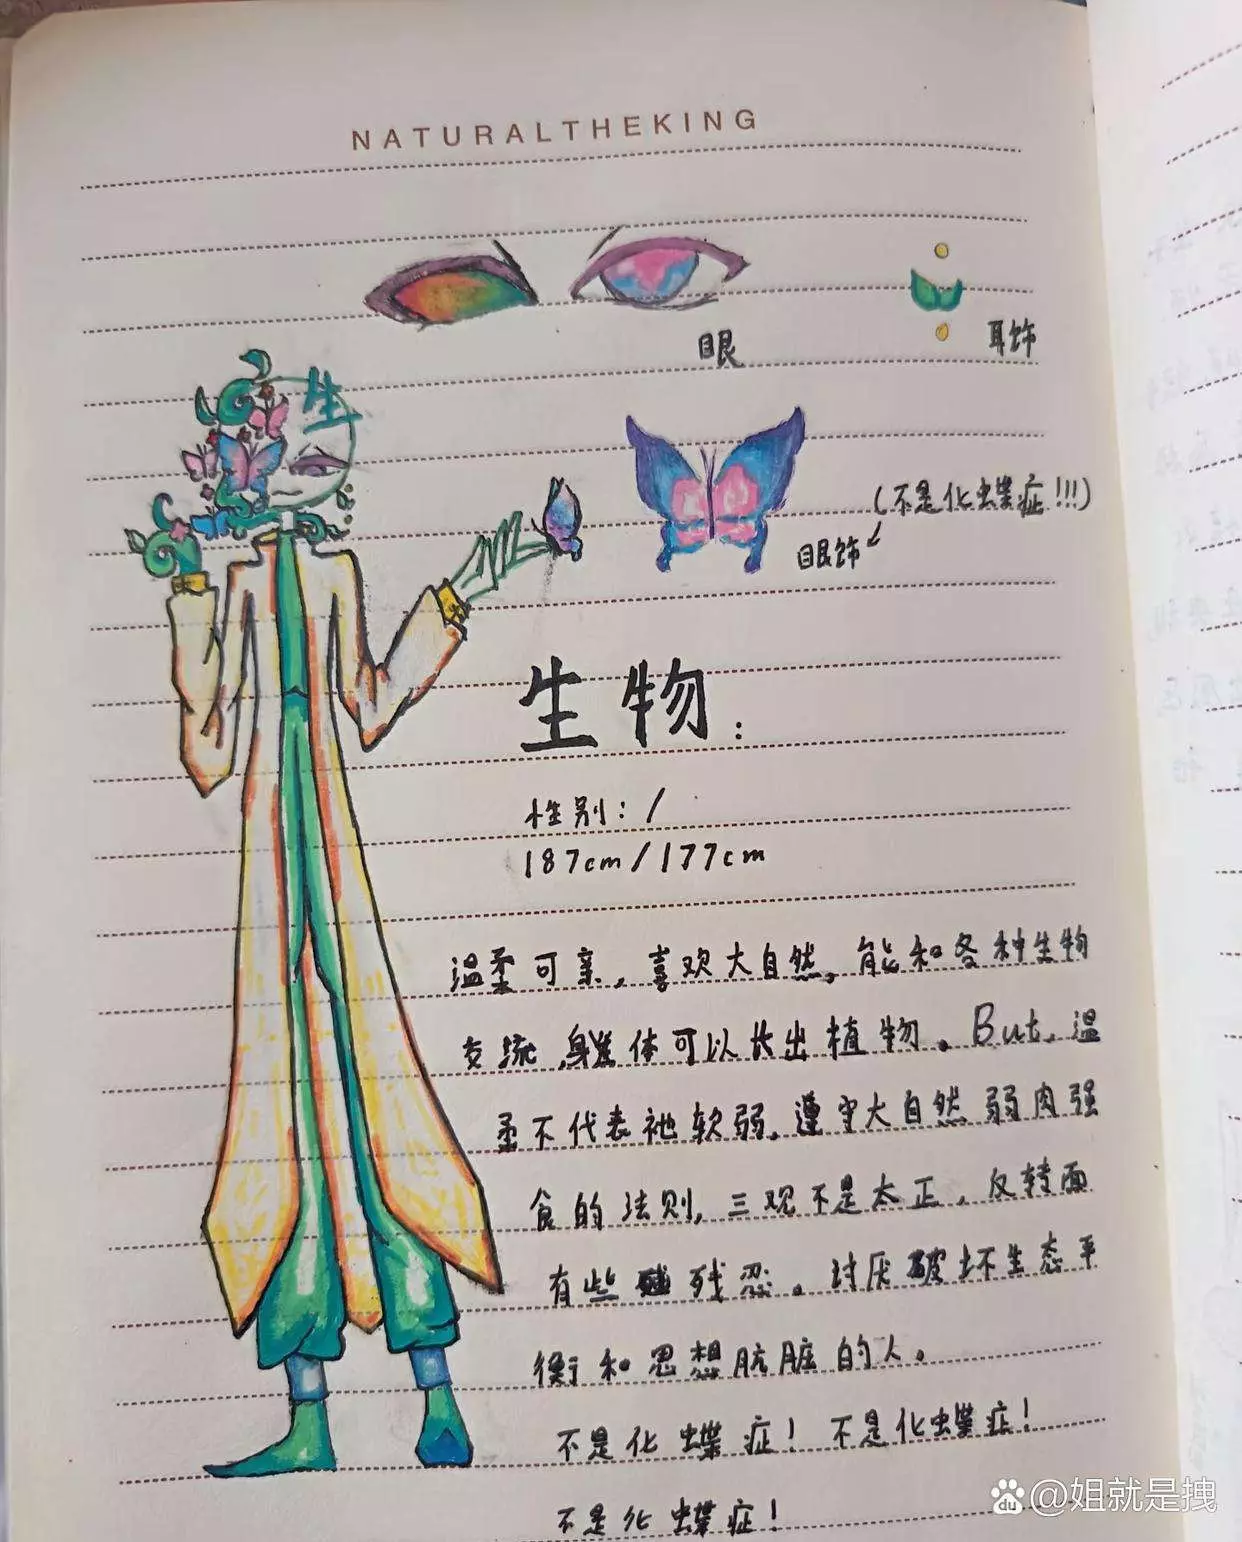 NATURALTHEKING
眼
耳饰
生
(不是化蝶症!!!)
眼饰
生物:
性别: /
187cm/177cm
温柔可亲,喜欢大自然,能和各种生物
交流,身体可以长出植物。But,温
柔不代表祂软弱,遵守大自然弱肉强
食的法则,三观不是太正,反转面
有些残忍。讨厌破坏生态平
衡和思想肮脏的人。
不是化蝶症!不是化蝶症!
不是化蝶症!
du @姐就是拽